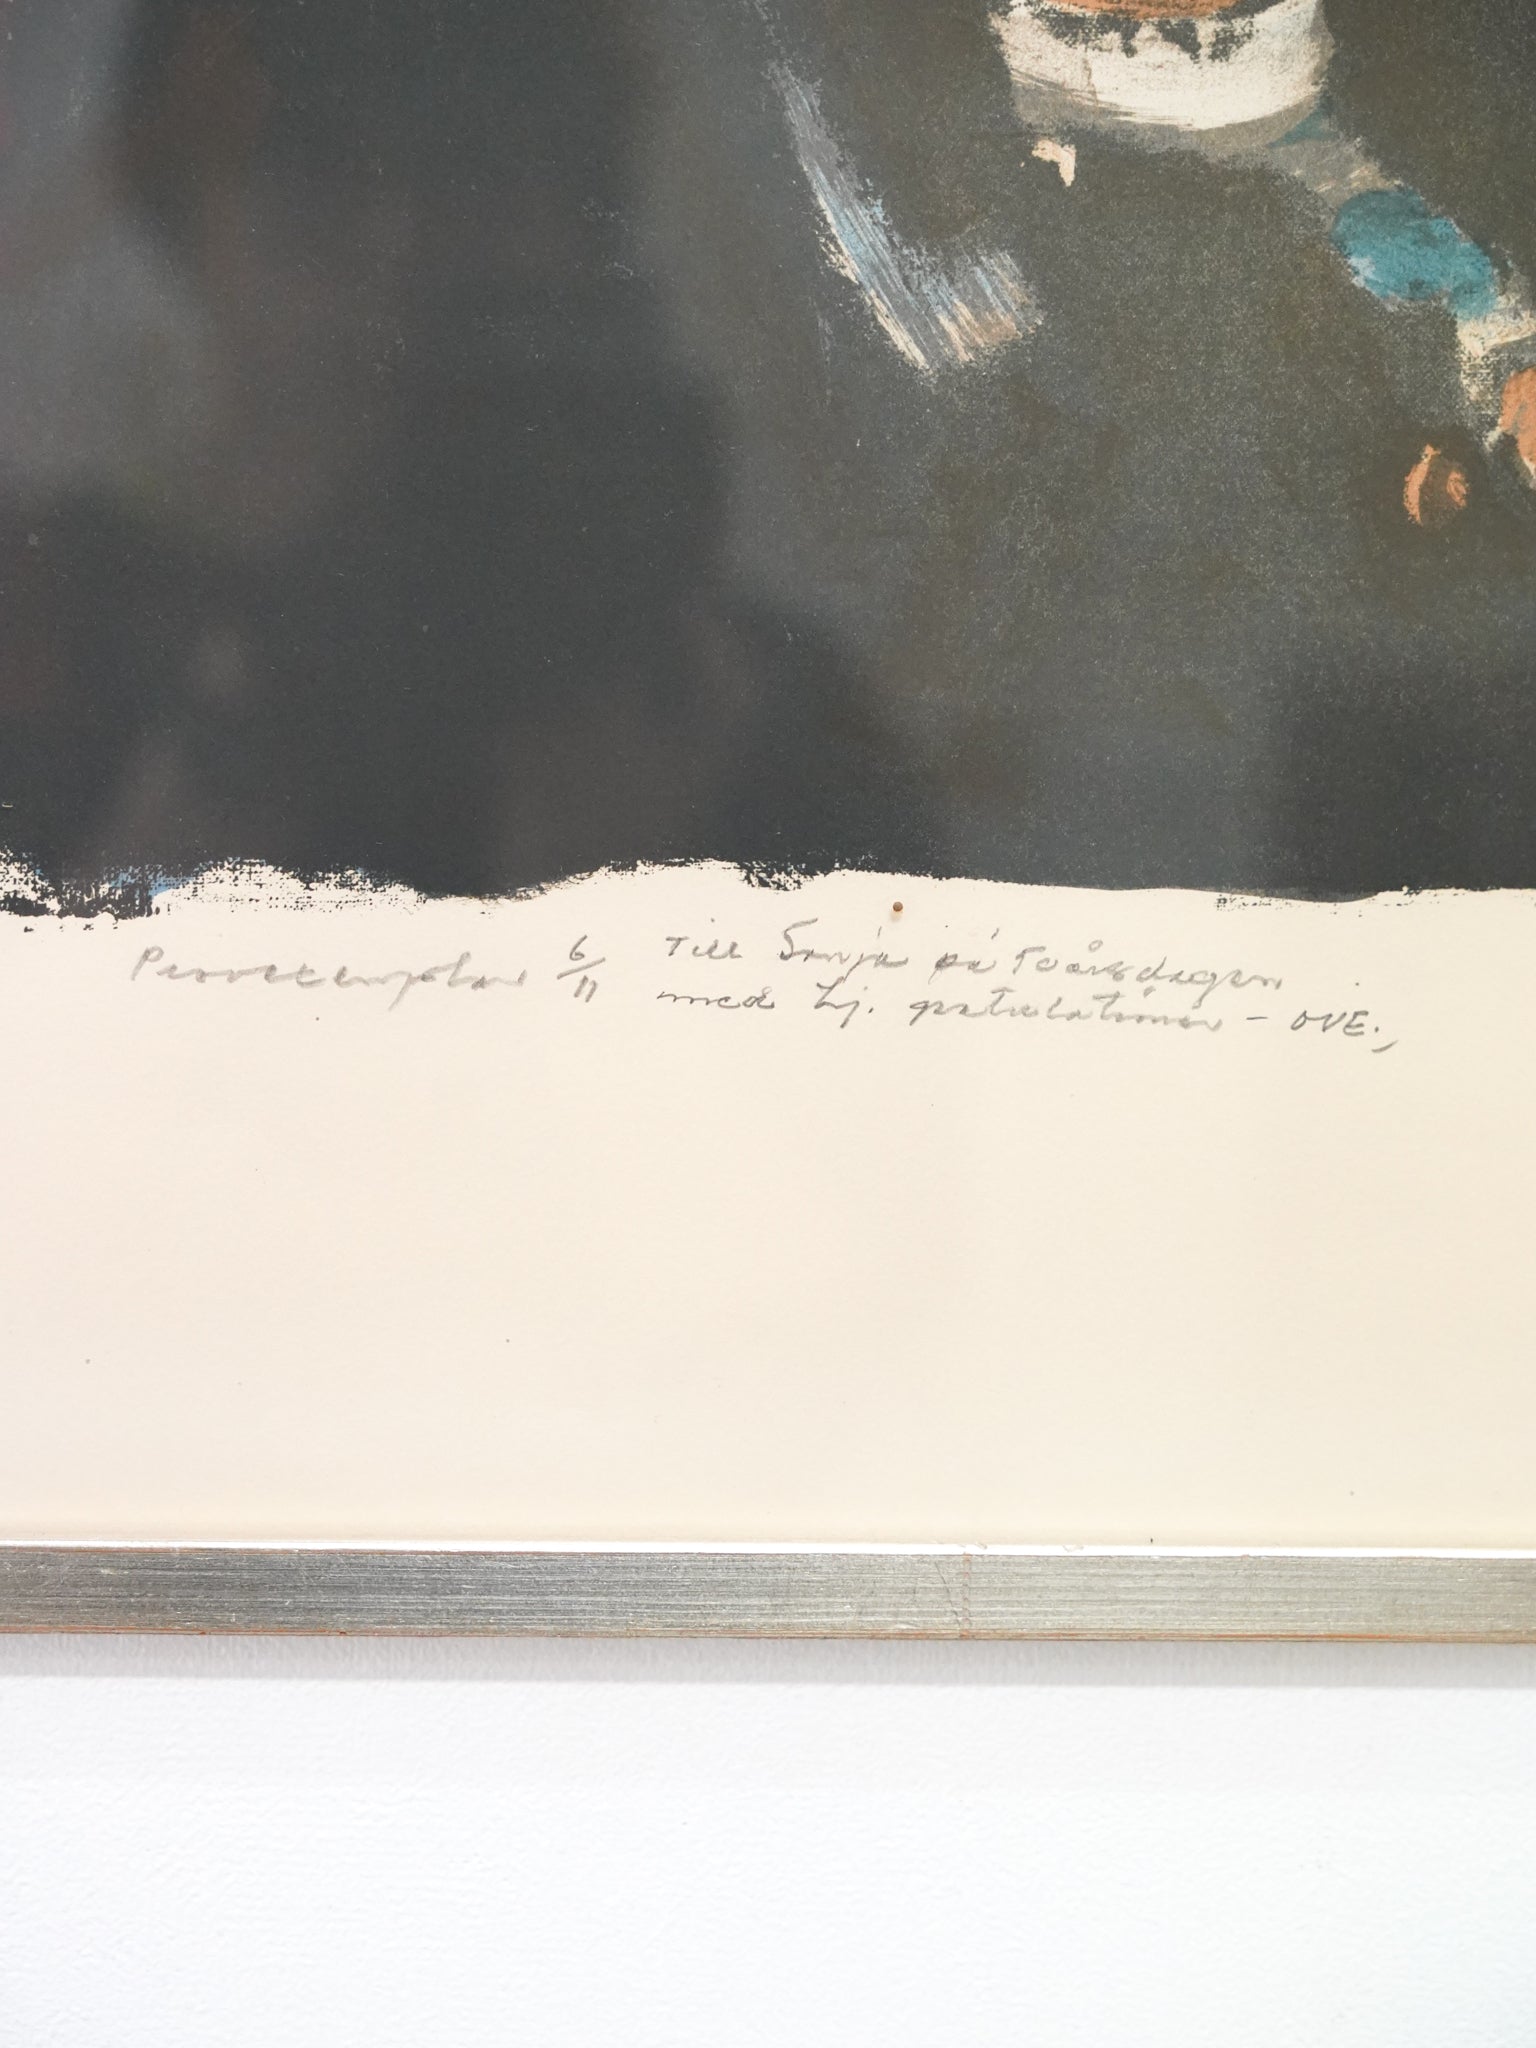 Provexemplar 6/11 Till Sonja på 70årsdagen
med hj. gratulationer - OVE.,